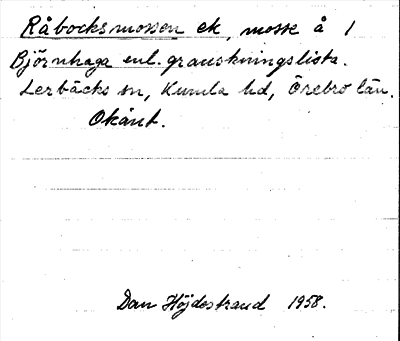 Råbocksmossen ek, mosse å 1
Björnhaga enl. granskningslista.
Lerbäcks sn, Kumla hd, Örebro län.
Okänt.
Dan Höjdestrand 1958.